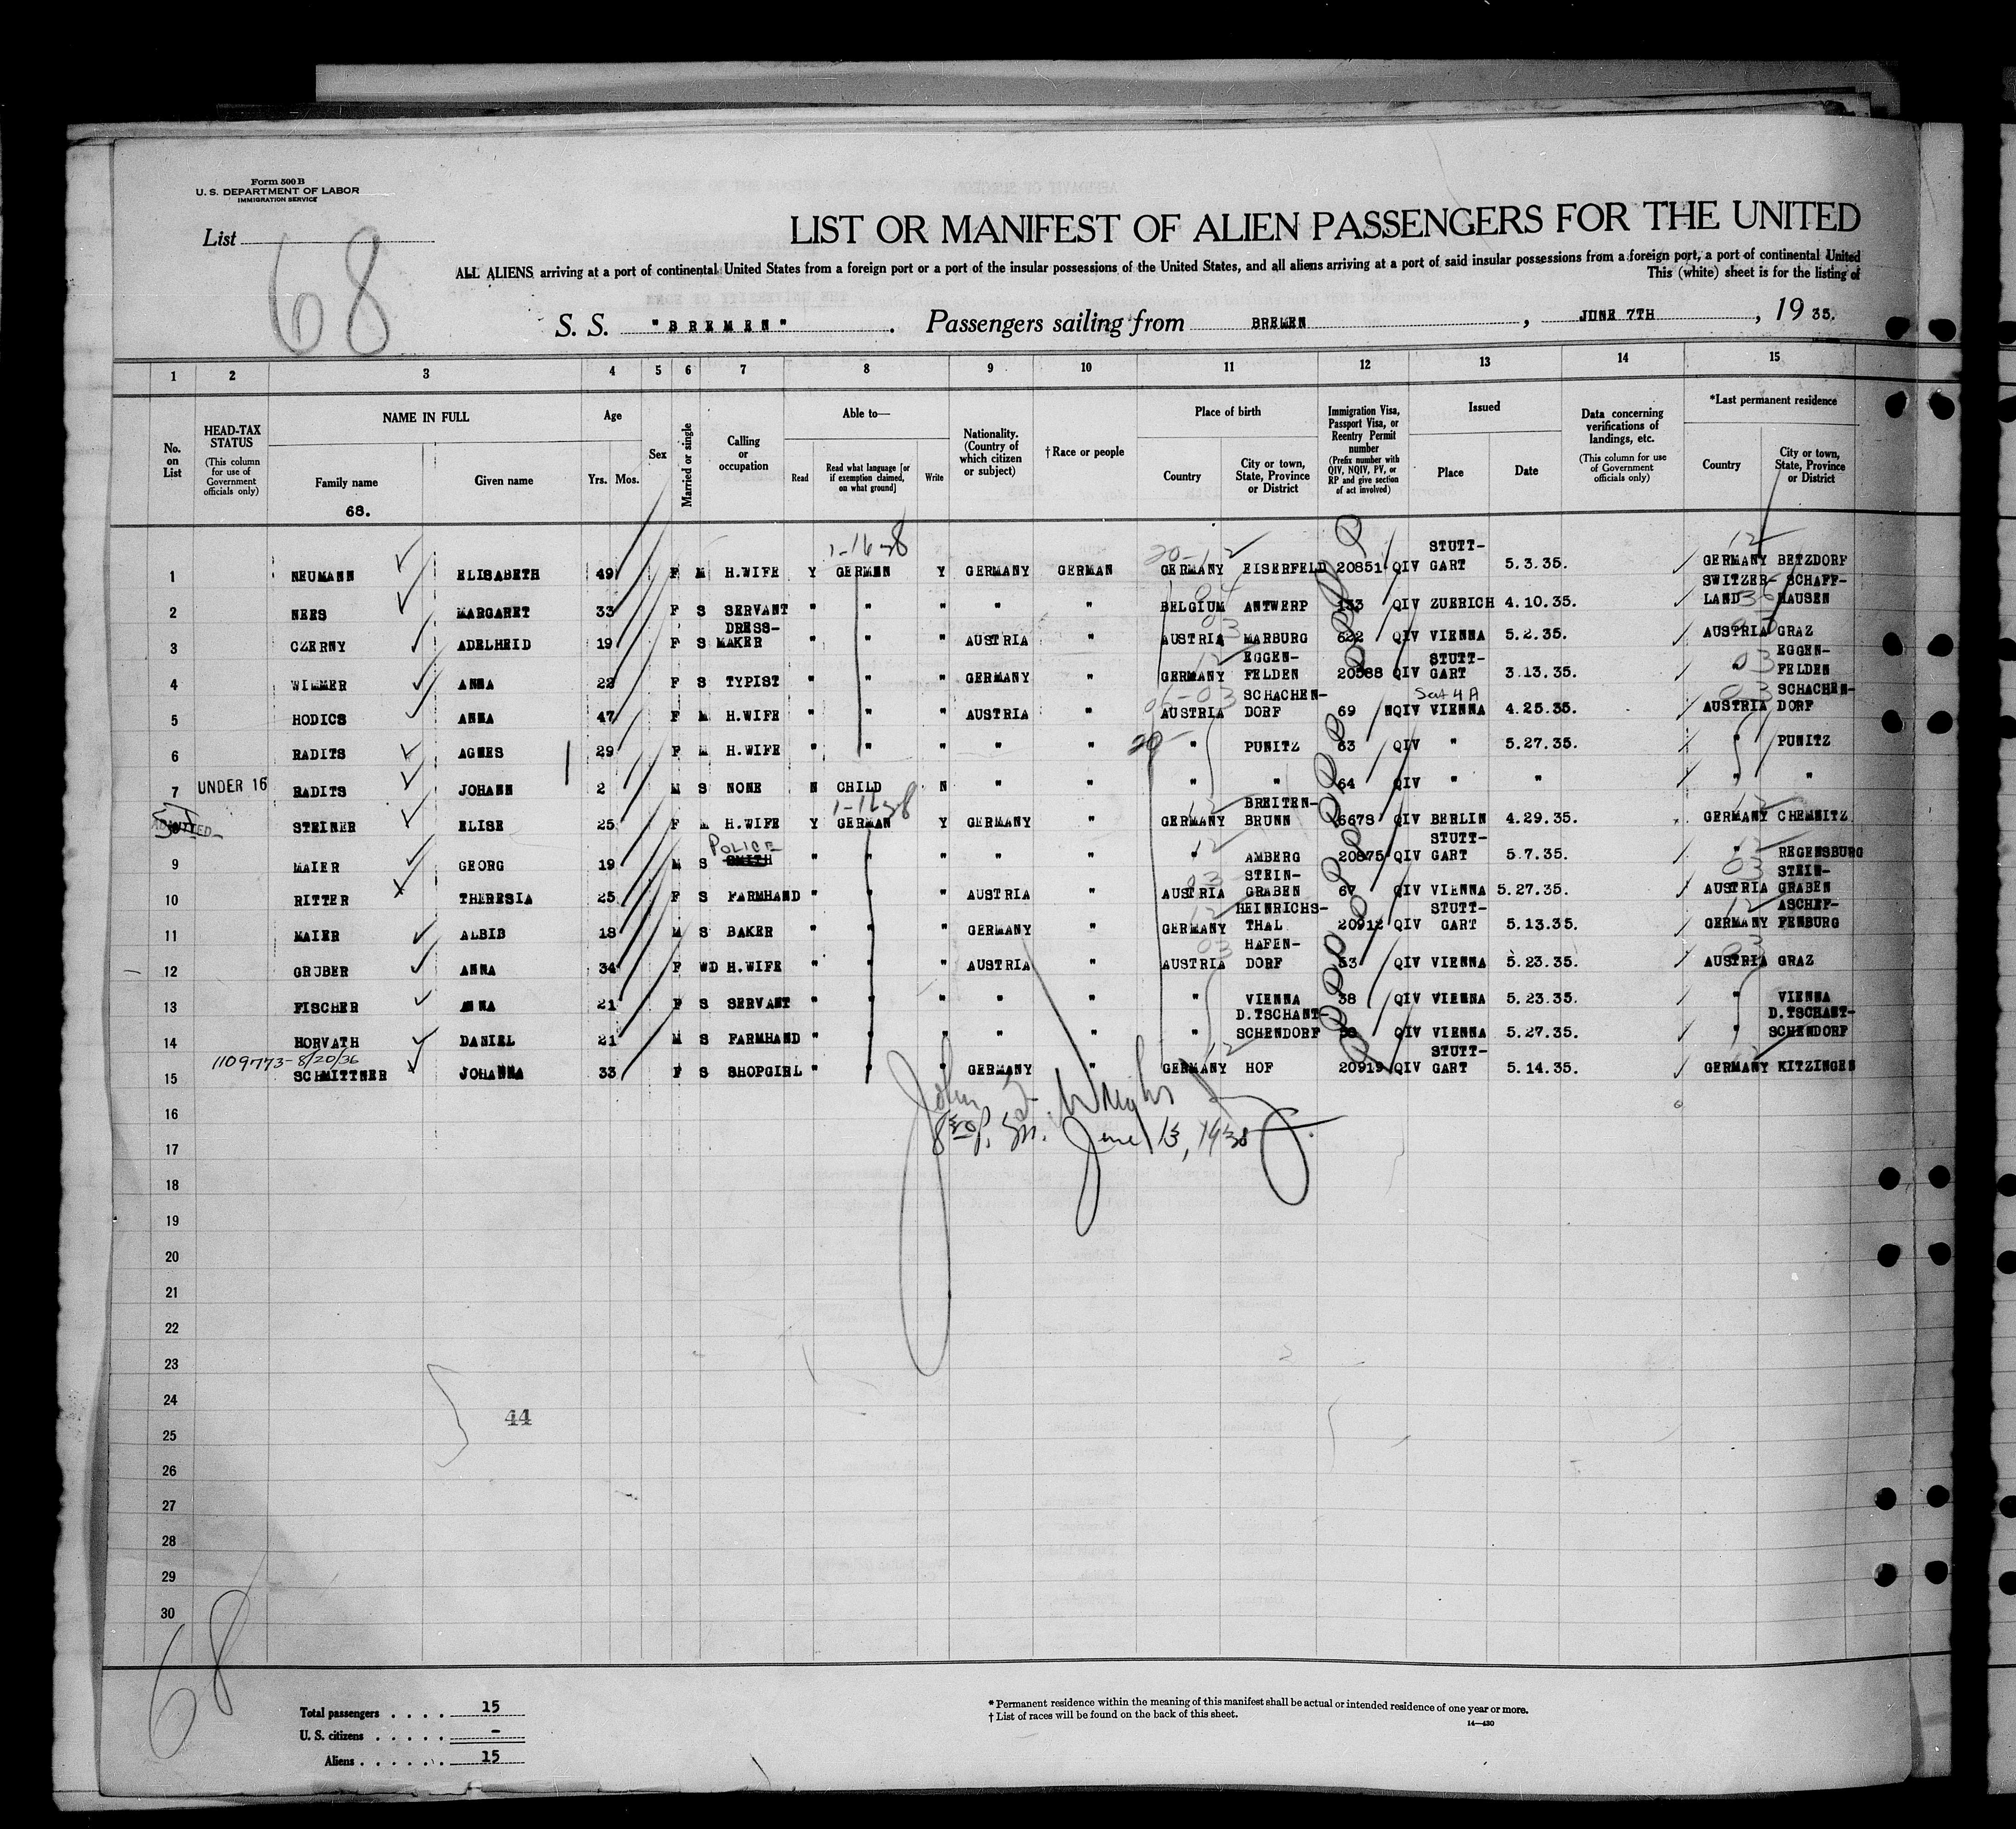 Form 500 B
U. S. DEPARTMENT OF LABOR
IMMIGRATION SERVICE
List
68
LIST OR MANIFEST OF ALIEN PASSENGERS FOR THE UNITED
ALL ALIENS arriving at a port of continental United States from a foreign port or a port of the insular possessions of the United States, and all aliens arriving at a port of said insular possessions from a foreign port, a port of continental United
This (white) sheet is for the listing of
S. S. "BREMEN". Passengers sailing from BREMEN, JUNE 7TH, 1935.
1 2 3 4 5 6 7 8 9 10 11 12 13 14 15
No. on List
HEAD-TAX STATUS (This column for use of Government officials only)
NAME IN FULL
Family name
Given name
68.
Age
Yrs. Mos.
Sex
Married or single
Calling or occupation
Able to—
Read
Read what language [or if exemption claimed, on what ground]
Write
Nationality. (Country of which citizen or subject)
†Race or people
Place of birth
Country
City or town, State, Province or District
Immigration Visa, Passport Visa, or Reentry Permit number (Prefix number with QIV, NQIV, PV, or RP and give section of act involved)
Issued
Place
Date
Data concerning verifications of landings, etc. (This column for use of Government officials only)
*Last permanent residence
Country
City or town, State, Province or District
1 NEUMANN ELISABETH 49 F M H.WIFE Y GERMEN Y GERMANY GERMAN GERMANY EISERFELD 20851 QIV STUTT-GART 5.3.35. GERMANY BETZDORF
2 NEES MARGARET 33 F S SERVANT " " " " " BELGIUM ANTWERP 133 QIV ZUERICH 4.10.35. SWITZER-LAND SCHAFF-HAUSEN
3 CZERNY ADELHEID 19 F S DRESS-MAKER " " " AUSTRIA " AUSTRIA MARBURG 622 QIV VIENNA 5.2.35. AUSTRIA GRAZ
4 WIMMER ANNA 22 F S TYPIST " " " GERMANY " GERMANY EGGEN-FELDEN 20588 QIV STUTT-GART 3.13.35. " EGGEN-FELDEN
5 HODICS ANNA 47 F M H.WIFE " " " AUSTRIA " AUSTRIA SCHACHEN-DORF 69 NQIV VIENNA 4.25.35. AUSTRIA SCHACHEN-DORF
Sec 4 A
6 RADITS AGNES 29 F M H.WIFE " " " " " " PUNITZ 63 QIV " 5.27.35. " PUNITZ
7 UNDER 16 RADITS JOHANN 2 M S NONE N CHILD N " " " " 64 QIV " " " "
ADMITTED
STEINER ELISE 25 F M H.WIFE Y GERMAN Y GERMANY " GERMANY BREITEN-BRUNN 6678 QIV BERLIN 4.29.35. GERMANY CHEMNITZ
9 MAIER GEORG 19 M S SMITH POLICE " " " " " " AMBERG 20875 QIV STUTT-GART 5.7.35. " REGENSBURG
10 RITTER THERESIA 25 F S FARMHAND " " " AUSTRIA " AUSTRIA STEIN-GRABEN 67 QIV VIENNA 5.27.35. AUSTRIA STEIN-GRABEN
11 MAIER ALBIB 18 M S BAKER " " " GERMANY " GERMANY HEINRICHS-THAL 20912 QIV STUTT-GART 5.13.35. GERMANY ASCHEF-FENBURG
12 GRUBER ANNA 34 F WD H.WIFE " " " AUSTRIA " AUSTRIA HAFEN-DORF 53 QIV VIENNA 5.23.35. AUSTRIA GRAZ
13 FISCHER ANNA 21 F S SERVANT " " " " " " VIENNA 38 QIV VIENNA 5.23.35. " VIENNA
14 HORVATH DANIEL 21 M S FARMHAND " " " " " " D.TSCHANT-SCHENDORF QIV VIENNA 5.27.35. " D.TSCHANT-SCHENDORF
1109773-8/20/36
15 SCHMITTNER JOHANNA 33 F S SHOPGIRL " " " GERMANY " GERMANY HOF 20919 QIV STUTT-GART 5.14.35. GERMANY KITZINGEN
16
17
18
19
20
21
22
23
24
25
26
27
28
29
30
John Wright
June 13, 1938
44
68
Total passengers . . . . 15
U. S. citizens . . . . . –
Aliens . . . . . . 15
* Permanent residence within the meaning of this manifest shall be actual or intended residence of one year or more.
† List of races will be found on the back of this sheet.
14—430